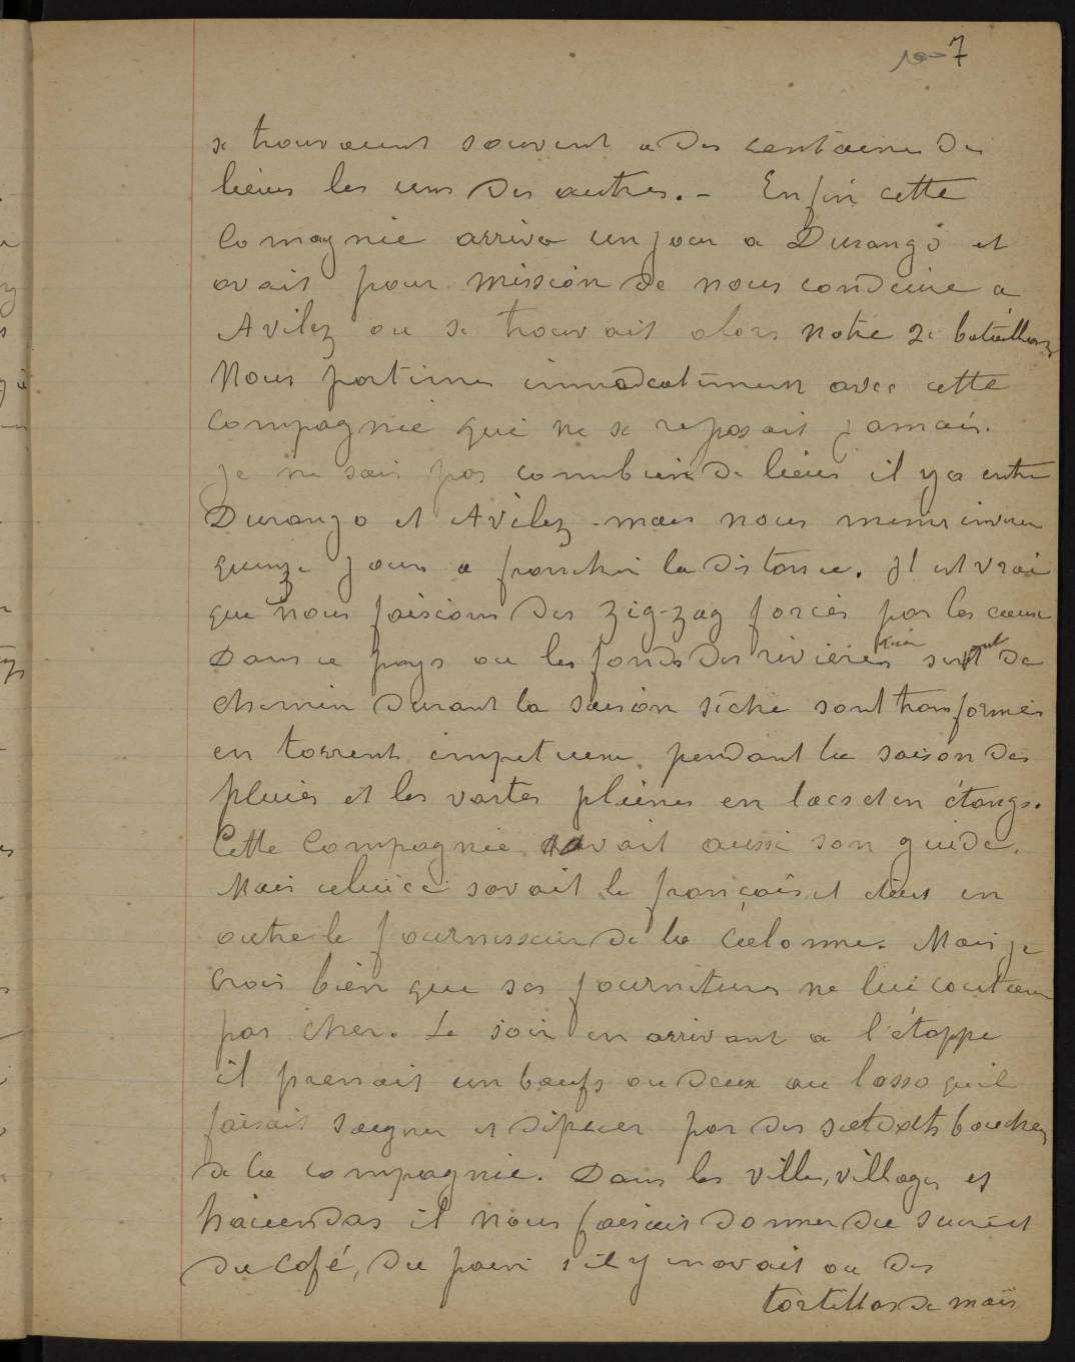 7
se trouvaient souvent a des centaines de
lieues les uns des autres. - Enfin cette
Comagnie arriva un jour a Durango et
avait pour mission de nous conduire a
Avilez ou se trouvait alors notre 2e bataillon
Nous partimes immediatement avec cette
Compagnie qui ne se reposait jamais.
Je ne sais pas combien de lieues il y a entre
Durango et Avilez mais nous mimes
quinze jours a franchir la distance. Il est vrai
que nous faisions des zig-zag forcés par les eaux
Dans ce pays ou les fonds des rivieres de
chemin durant la saison sèche sont transformés
en torrent impetueux pendant la saison des
pluies et les vastes plaines en lacs et en étangs.
Cette Compagnie avait aussi son guide.
Mais celui ci savait le français et était en
outre le fournisseur de la colonne. Mais je
crois bien que ses fournitures ne lui coutaient
pas cher. Le soir en arrivant a l'étappe
il prenait un bœufs ou deux au lasso qu'il
faisait saigner et dépecer par des soldats bouchers
de la compagnie. Dans les villes, villages et
haciendas il nous faisait donner du sucre et
du café, du pain s'il y en avait ou des
tortillas de maïs